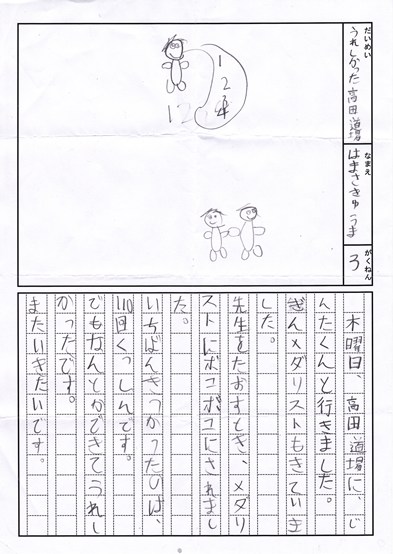 だいめい
うれしかった高田道場
なまえ
はまさききゅうま
がくねん
3
1
2
3
4
12
木曜日、高田道場に、じ
んたくんと行きました。
ぎんメダリストもきていま
した。
先生をたおすとき、メダリ
ストにボコボコにされまし
た。
いちばんきつかったのは、
110回くっしんです。
でもなんとかできてうれし
かったです。
またいきたいです。